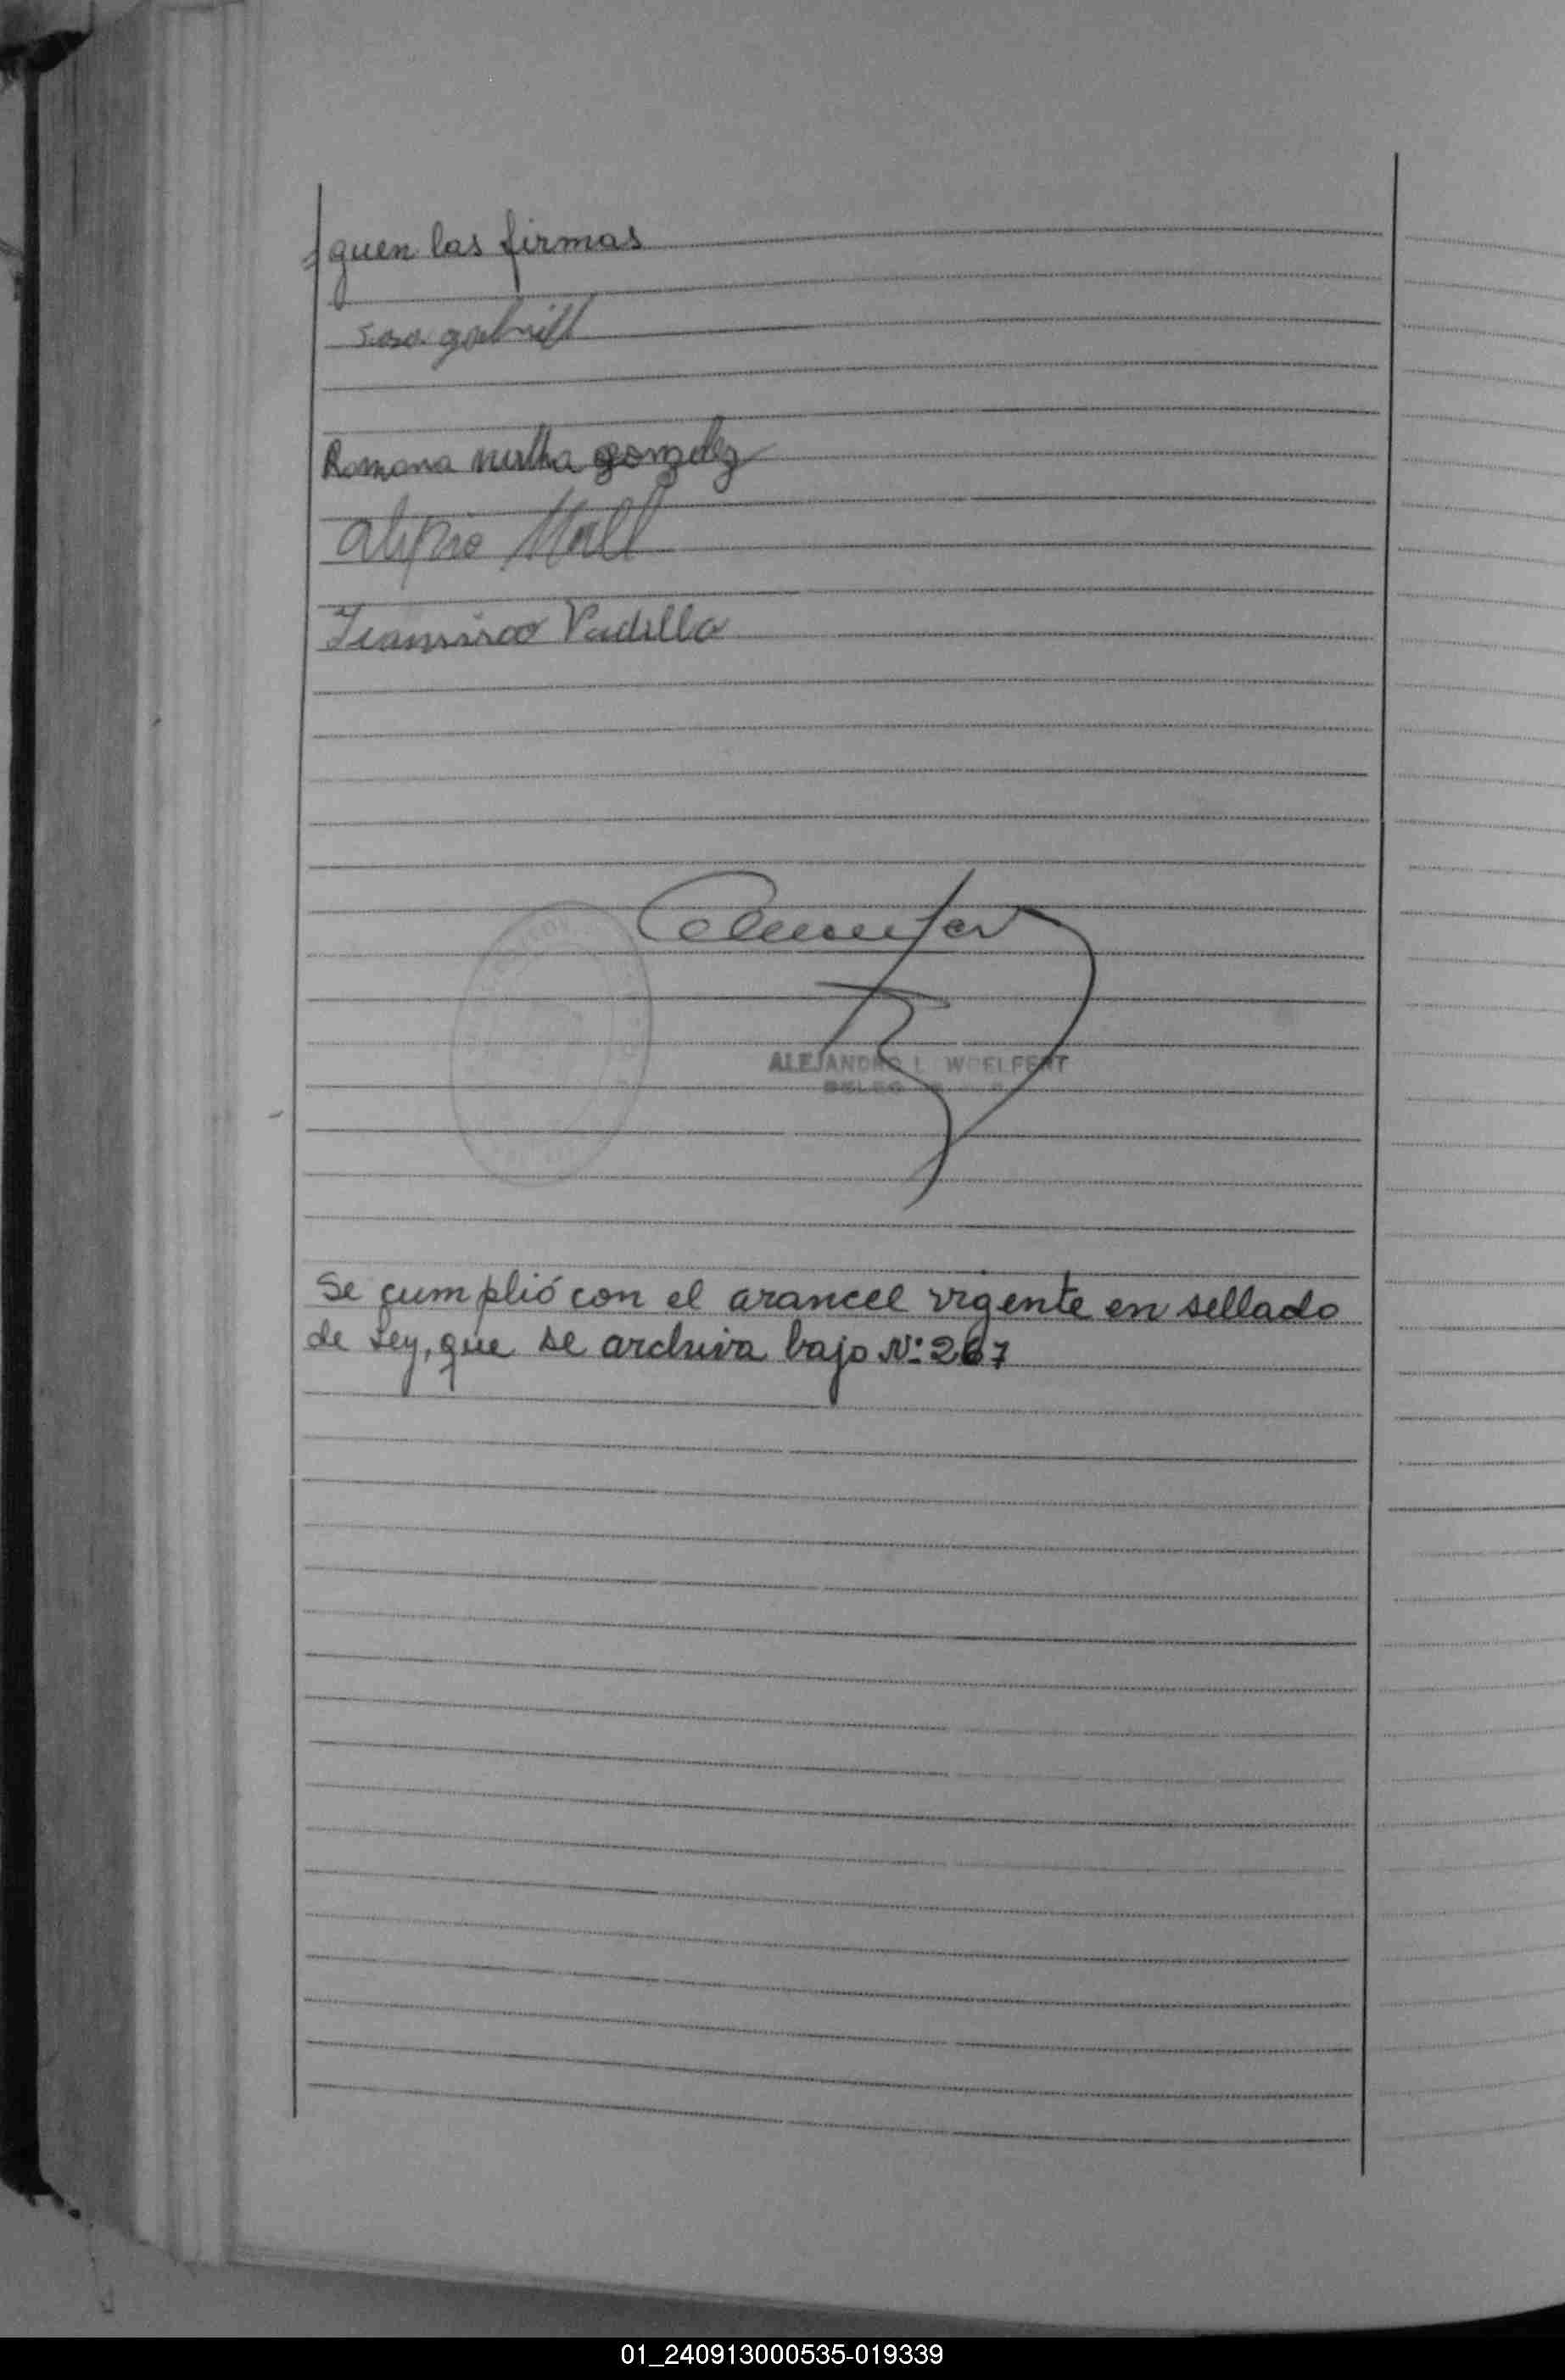 guen las firmas
Sosa gabriel
Romana mirtha gonzalez
alipio
Francisco Padilla
ALEJANDRO L. WOELFERT
Se cumplió con el arancel vigente en sellado
de Ley, que se archiva bajo Nº 267
01_240913000535-019339